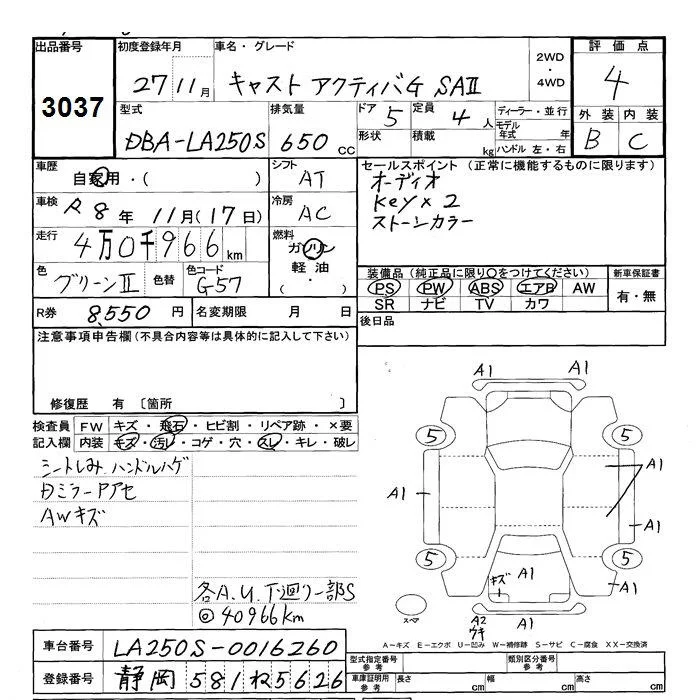 出品番号
3037
初度登録年月
27 11 月
車名・グレード
キャスト アクティバG SAⅡ
2WD
・
4WD
評価点
4
外装 内装
B C
型式
DBA-LA250S
排気量
650 CC
ドア 5
定員 4 人
形状
積載 kg
ディーラー・並行
モデル年式 年
ハンドル 左・右
車歴
自家用・( )
シフト
AT
車検
R 8 年 11 月 (17 日)
冷房
AC
走行
4万0千966 km
燃料
ガソリン
軽油
( ・ )
色
グリーンⅡ
色替
色コード
G57
R券 8,550 円
名変期限 月 日
セールスポイント (正常に機能するものに限ります)
オーディオ
Key×2
ストーンカラー
装備品 (純正品に限り○をつけてください)
PS PW ABS エアB AW
SR ナビ TV カワ
新車保証書
有・無
後日品
注意事項申告欄 (不具合内容等は具体的に記入して下さい)
修復歴 有 〔箇所 〕
検査員記入欄
FW キズ・飛石・ヒビ割・リペア跡・×要
内装 キズ・汚レ・コゲ・穴・スレ・キレ・破レ
シートしみ ハンドルハゲ
Dミラー アアセ
AWキズ
各A.U.下廻り一部S
◎40966km
A1
A1 A1
5 5
A1 A1
A1
5 5
キズ
A1
A1
スペア
A2
ウキ
A1
A−キズ E−エクボ U−凹み W−補修跡 S−サビ C−腐食 XX−交換済
車台番号 LA250S-0016260
登録番号 静岡 581 ね 5626
型式指定番号
参考
類別区分番号
参考
車庫証明用
参考
長さ cm
幅 cm
高さ cm